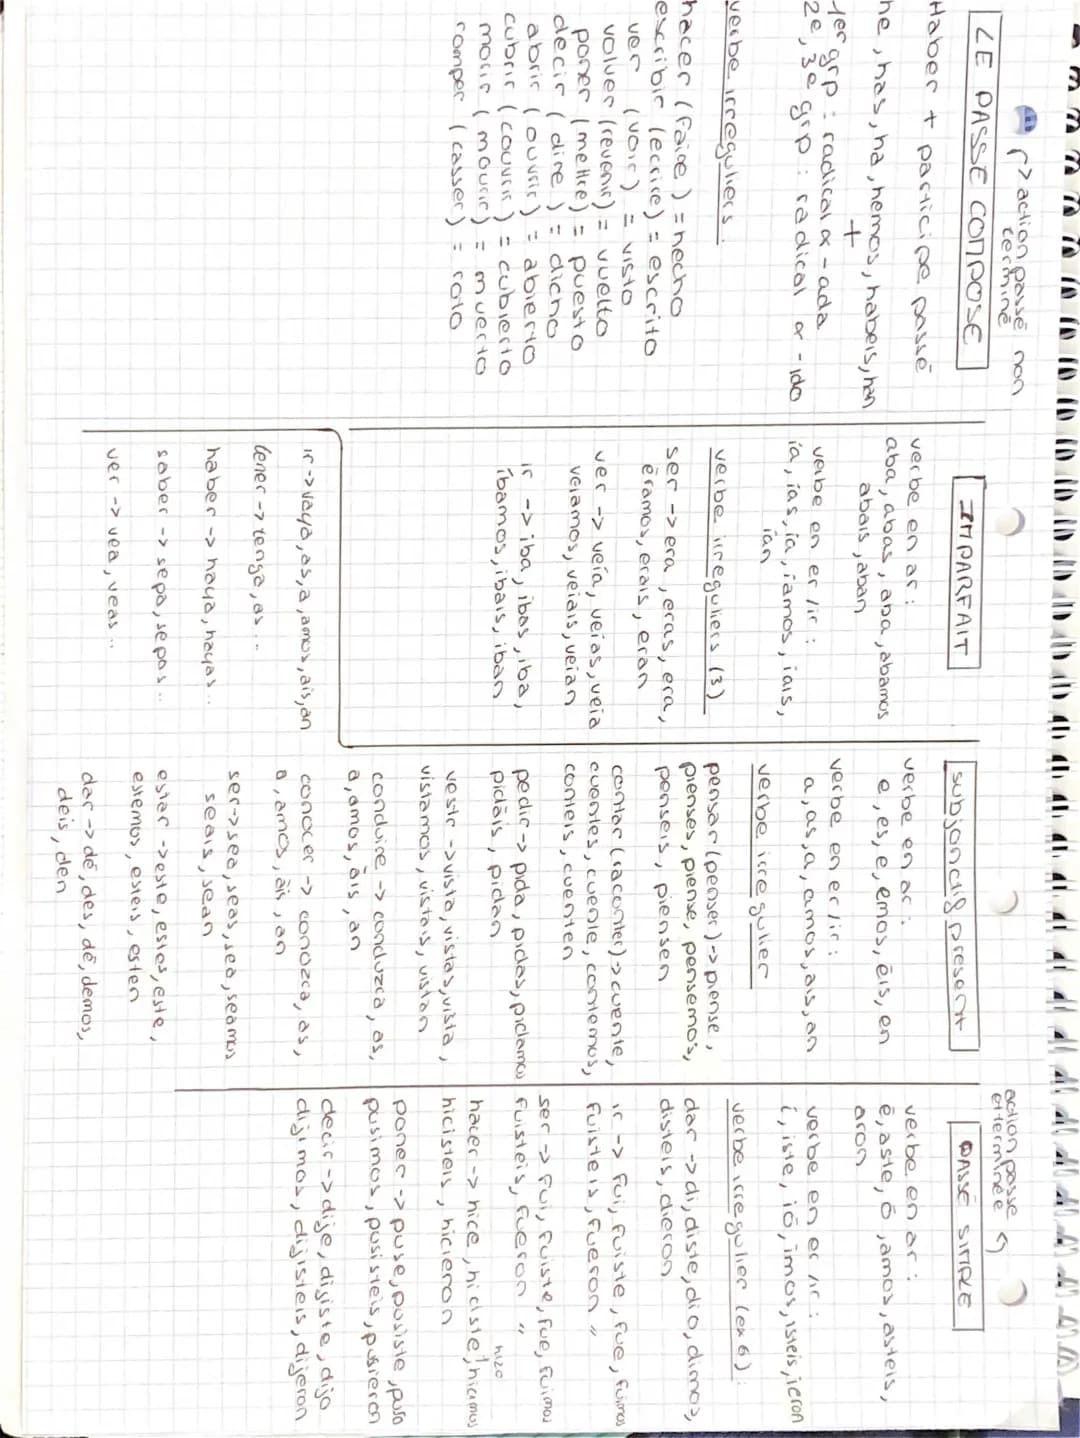 ↱> action passé non
terminé
LE PASSE COMPOSE
Haber + participe passé
he, has, ha, hemos, habeis, han
+
1er grp : radical α - ada
2e, 3e grp : radical α - ido
verbe irreguliers.
hacer (faire) = hecho
escribir (ecrire) = escrito
ver (voir) = visto
volver (revenir) = vuelto
poner (mettre) = puesto
decir (dire) = dicho
abrir (ouvrir) = abierto
cubrir (couvrir) = cubierto
morir (mourir) = muerto
romper (casser) = roto
IMPARFAIT
verbe en ar :
aba, abas, aba, abamos
abais, aban
verbe en er/ir :
ía, ías, ía, íamos, íais,
ían
verbe irreguliers (3)
ser -> era, eras, era,
éramos, erais, eran
ver -> veía, veías, veía
veíamos, veíais, veían
ir -> iba, ibas, iba,
íbamos, ibais, iban
ir -> vaya, as, a, amos, ais, an
tener -> tenga, as ..
haber -> haya, hayas ..
saber -> sepa, sepas ..
ver -> vea, veas ..
subjonctif present
verbe en ar :
e, es, e, emos, éis, en
verbe en er/ir :
a, as, a, amos, ais, an
verbe irregulier
pensar (penser) -> piense,
pienses, piense, pensemos,
penseis, piensen
contar (raconter) -> cuente,
cuentes, cuente, contemos,
conteis, cuenten
pedir -> pida, pidas, pidamos
pidáis, pidan
vestir -> vista, vistas, vista,
vistamos, vistais, vistan
conduire -> conduzca, as,
a, amos, áis, an
conocer -> conozca, as,
a, amos, áis, an
ser -> sea, seas, sea, seamos
seais, sean
estar -> este, estes, este,
estemos, esteis, esten
dar -> dé, des, dé, demos,
deis, den
action passe
et terminée ↰
PASSÉ SIMPLE
verbe en ar :
é, aste, ó, amos, asteis,
aron
verbe en er/ir :
í, iste, ió, imos, isteis, ieron
verbe irregulier (ex 6) :
dar -> di, diste, dio, dimos,
disteis, dieron
ir -> fui, fuiste, fue, fuimos
fuisteis, fueron "
ser -> fui, fuiste, fue, fuimos
fuisteis, fueron "
hizo
hacer -> hice, hiciste, hicimos
hicisteis, hicieron
poner -> puse, pusiste, puso
pusimos, pusisteis, pusieron
decir -> dije, dijiste, dijo
dijimos, dijisteis, dijeron